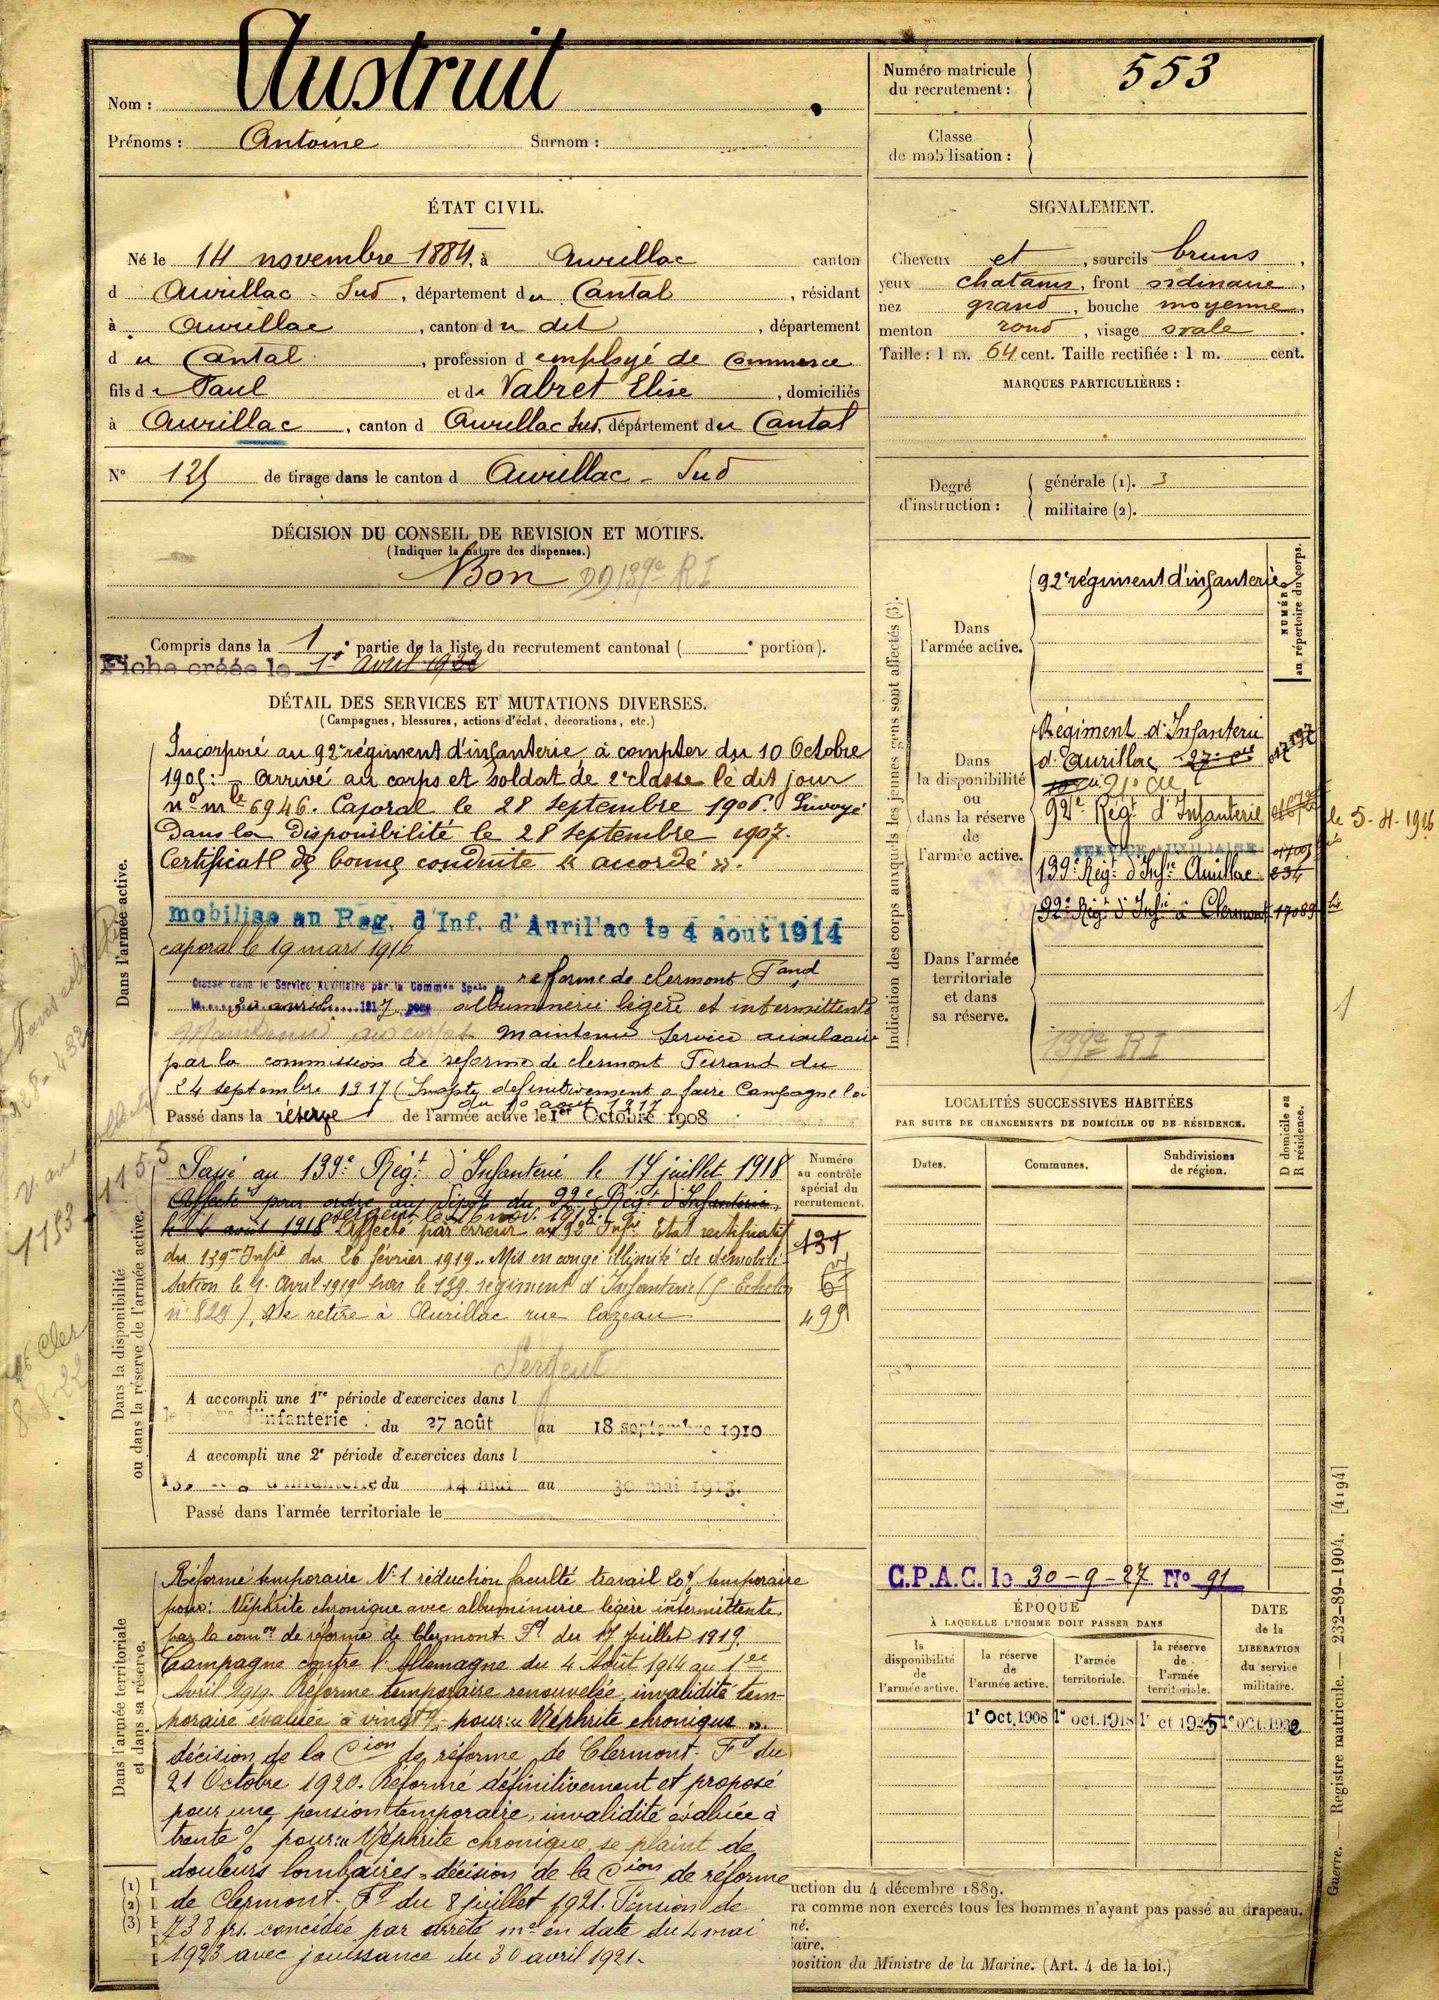 Nom : Austruit
Prénoms : Antoine Surnom :
Numéro matricule
du recrutement : 553
Classe
de mobilisation :
ÉTAT CIVIL.
Né le 14 novembre 1884, à Aurillac canton
d Aurillac - Sud, département du Cantal, résidant
à Aurillac, canton du dit, département
du Cantal, profession d employé de Commerce
fils de Paul et de Vabret Elise, domiciliés
à Aurillac, canton d Aurillac Sud, département du Cantal
N° 125 de tirage dans le canton d Aurillac - Sud
SIGNALEMENT.
Cheveux et, sourcils bruns,
yeux chatains, front ordinaire,
nez grand, bouche moyenne,
menton rond, visage ovale.
Taille : 1 m. 64 cent. Taille rectifiée : 1 m. cent.
MARQUES PARTICULIÈRES :
Degré
d'instruction :
générale (1). 3
militaire (2).
DÉCISION DU CONSEIL DE REVISION ET MOTIFS.
(Indiquer la nature des dispenses.)
Bon DD 139e RI
Compris dans la 1e partie de la liste du recrutement cantonal ( e portion).
Fiche créée le 1er avril 1922
DÉTAIL DES SERVICES ET MUTATIONS DIVERSES.
(Campagnes, blessures, actions d'éclat, décorations, etc.)
Dans l'armée active.
Incorporé au 92e régiment d'infanterie à compter du 10 Octobre
1905 : - Arrivé au corps et soldat de 2e classe le dit jour
no mle 6946. Caporal le 28 septembre 1906. Envoyé
Dans la Disponibilité le 28 Septembre 1907.
Certificatl de bonne conduite « accordé ».
mobilise au Reg. d'Inf. d'Aurillac le 4 aout 1914
caporal le 19 mars 1916
Classé dans le Service Auxiliaire par la Common Spale de reforme de clermont Fand
le 20 avril 1917, pour albuminerie légère et intermittente
Maintenu au corps maintenu Service auxiliaire
par la commission de reforme de clermont Ferrand du
24 septembre 1917 (Inapte definitivement a faire Campagne loi
du 10 aout 1917
Passé dans la réserve de l'armée active le 1er Octobre 1908
Dans la disponibilité
ou dans la réserve de l'armée active.
Passé au 139e Régt d'Infanterie le 17 juillet 1918
Affecté pour ordre au Dépot du 92e Régt d'Infanterie
le 4 août 1918 sergent le 16 nov. 1918. Affecté par erreur au 92 Infie Etat rectificatif
du 139me Infie du 26 février 1919. Mis en congé illimité de démobili-
sation le 1. Avril 1919 par le 139. régiment d'Infanterie ( Echelon
n° 829), Se retire à Aurillac rue Cazeau
Sergent
Numéro
au contrôle
spécial du
recrutement.
131
67
499
A accompli une 1re période d'exercices dans l
d'infanterie du 27 août au 18 septembre 1910
A accompli une 2e période d'exercices dans l
139 d'infanterie du 14 mai au 30 mai 1913.
Passé dans l'armée territoriale le
Dans l'armée territoriale
et dans sa réserve.
Réformé temporaire N° 1 réduction faculté travail 20% temporaire
pour : Néphrite chronique avec albuminurie légère intermittente
par la comon de réforme de Clermont Fd du 17 Juillet 1919.
Campagne contre l'Allemagne du 4 Août 1914 au 1er
Avril 1919. Réforme temporaire renouvelée, invalidité tem-
poraire évaluée à vingt % pour : « Néphrite chronique ».
décision de la Cion de réforme de Clermont-Fd du
21 Octobre 1920. Réformé définitivement et proposé
pour une pension temporaire, invalidité évaluée à
trente % pour : « Néphrite chronique, se plaint de
douleurs lombaires » décision de la Cion de réforme
de Clermont-Fd du 8 juillet 1921. Pension de
738 frs. concédée par arrêté mel en date du 4 mai
1923 avec jouissance du 30 avril 1921.
Indication des corps auxquels les jeunes gens sont affectés (3).
NUMÉRO
au répertoire du corps.
Dans
l'armée active.
92e régiment d'infanterie
Dans
la disponibilité
ou
dans la réserve
de
l'armée active.
Régiment d'Infanterie
d'Aurillac
92e Régt d'Infanterie
SERVICE AUXILIAIRE
139e Régt d'Infie Aurillac 234
92e Régt d'Infie à Clermont 17089 bis
le 5-4-1916
Dans l'armée
territoriale
et dans
sa réserve.
139e RI
1
LOCALITÉS SUCCESSIVES HABITÉES
PAR SUITE DE CHANGEMENTS DE DOMICILE OU DE RÉSIDENCE.
Dates. Communes. Subdivisions
de région.
D domicile ou
R résidence.
C.P.A.C. le 30-9-27 N° 91
ÉPOQUE
À LAQUELLE L'HOMME DOIT PASSER DANS
la
disponibilité
de
l'armée active.
la réserve
de
l'armée active.
l'armée
territoriale.
la réserve
de
l'armée
territoriale.
DATE
de la
LIBÉRATION
du service
militaire.
1r Oct. 1908 1er oct. 1918
uction du 4 décembre 1889.
ra comme non exercés tous les hommes n'ayant pas passé au drapeau.
né.
iaire.
position du Ministre de la Marine. (Art. 4 de la loi.)
(1)
(2)
(3)
Guerre. — Registre matricule. — 232-89-1904. [4194]
1155
1153
8-8-22